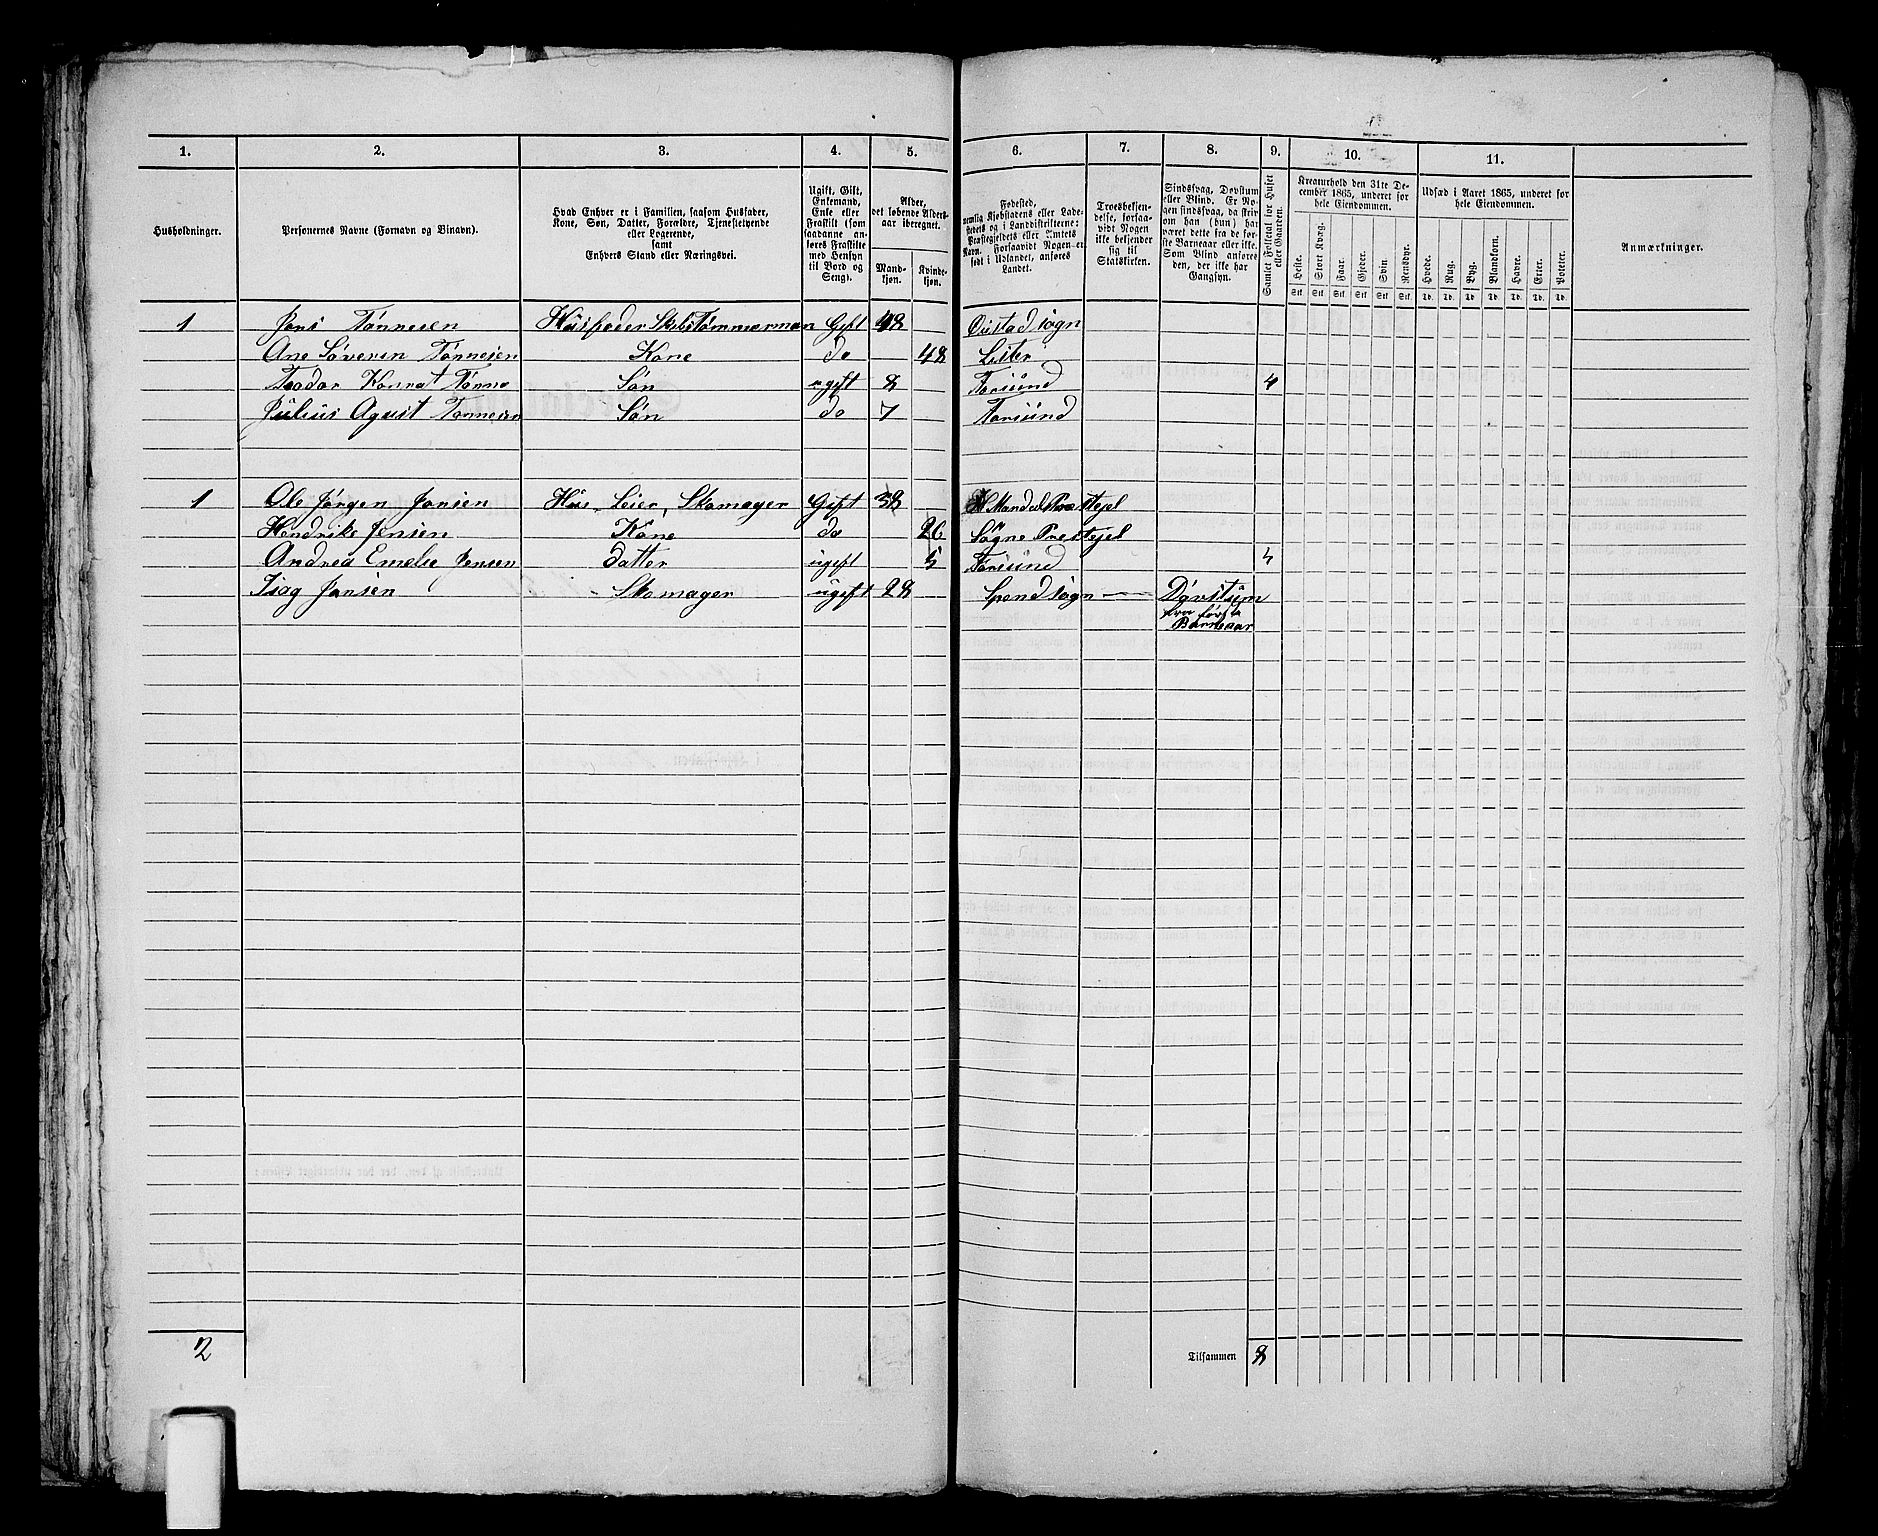 1. 2. 3. 4. 5. 6. 7. 8. 9. 10. 11.
Husholdninger.
Personernes Navne (Fornavn og Binavn).
Hvad Enhver er i Familien, saasom Husfader,
Kone, Søn, Datter, Forældre, Tjenestetyende
eller Logerende,
samt
Enhvers Stand eller Næringsvei.
Ugift, Gift,
Enkemand,
Enke eller
Fraskilt (som
saadanne an-
føres Fraskilte
med Hensyn
til Bord og
Seng).
Alder,
det løbende Alders-
aar iberegnet.
Mand-
kjøn.
Kvinde-
kjøn.
Fødested,
nemlig Kjøbstadens eller Lade-
stedets og i Landdistrikterne:
Præstegjeldets eller Amtets
Navn. Forsaavidt Nogen er
født i Udlandet, anføres
Landet.
Troesbekjen-
delse, forsaa-
vidt Nogen
ikke bekjender
sig til
Statskirken.
Sindssvag, Døvstum
eller Blind. Er No-
gen sindssvag, da skri-
ves om han (hun) har
været dette fra de før-
ste Barneaar eller ikke.
Som Blind anføres
den, der ikke har
Gangsyn.
Samlet Folketal for Huset
eller Gaarden.
Kreaturhold den 31te De-
cember 1865, underet for
hele Eiendommen.
Heste. Stort Kvæg. Faar. Gjeder. Svin. Rensdyr.
Stk. Stk. Stk. Stk. Stk. Stk.
Udsæd i Aaret 1865, underet for
hele Eiendommen.
Hvede. Rug. Byg. Blandkorn. Havre. Erter. Poteter.
Td. Td. Td. Td. Td. Td. Td.
Anmærkninger.
1 Jens Tønnesen Husfader Skibstømmerman Gift 48 sogn
Ane Søveren Tønnesen Kone do 48 Lister
Teodor Konrat Tønne Søn ugift 8 Farsund 4
Julius Agust Tønnesen Søn do 7 Farsund
1 Ole Jørgen Jensen Hus Leier, Skomager Gift 38 Mandal Prestejel
Hendrike Jensen Kone do 26 Søgne Prestejel
Andrea Emelie Jensen Datter ugift 5 Farsund 4
Isag Jensen Skomager ugift 28 Spend sogn Døvstum
fra første
Barneaar
2
Tilsammen 8